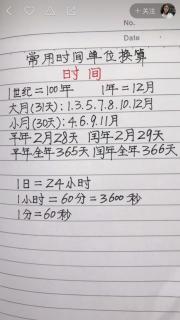 +关注
No.
Date
常用时间单位换算
时间
1世纪=100年 1年=12月
大月(31天):1.3.5.7.8.10.12月
小月(30天):4.6.9.11月
平年2月28天 闰年2月29天
平年全年365天 闰年全年366天
1日=24小时
1小时=60分=3600秒
1分=60秒